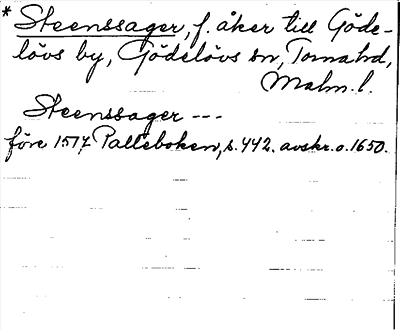 * Steenssager, f. åker till Göde-
lövs by, Gödelövs sn, Tornahd,
Malm. l.
Steenssager ---
före 1517 Palteboken, s. 442. avskr. o. 1650.